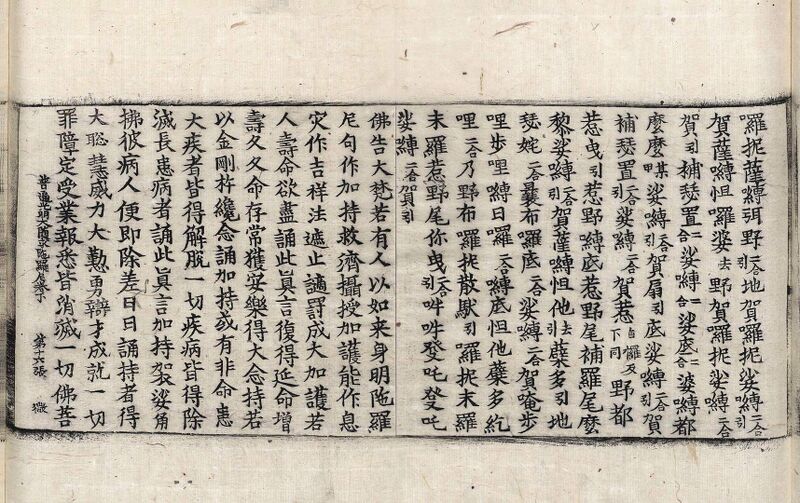 羅抳薩縛弭野二合引地賀羅抳娑縛二合引
賀薩縛怛羅娑去野賀羅抳娑縛二合
賀引補瑟置二合娑縛二合娑底二合婆縛都
麼麼某甲娑縛二合引賀扇引底娑縛二合引賀
補瑟置二合引娑縛二合賀惹下同野都
惹曳引惹野縛底惹野尾補羅尾麼
黎娑縛二合引賀薩縛怛他去蘖多引地
瑟姹二合曩布羅底二合娑縛二合賀唵步
哩步哩縛日囉二合縛底怛他蘖多紇
哩二合乃野布囉抳散馱引囉抳末羅
末羅惹野尾你曳引吽吽發吒發吒
娑縛二合賀引
佛告大梵若有人以如来身明陁羅
尼句作加持救濟攝授加護能作息
灾作吉祥法遮止讁罸成大加護若
人壽命欲盡誦此真言復得延命增
壽久久命存常獲安樂得大念持若
以金剛杵纔念誦加持或有非命患
大疾者皆得解脫一切疾病皆得除
滅長患病者誦此真言加持袈裟角
拂彼病人便即除差日日誦持者得
大聡慧威力大勤勇辯才成就一切
罪障定受業報悉皆消滅一切佛菩
第十六張